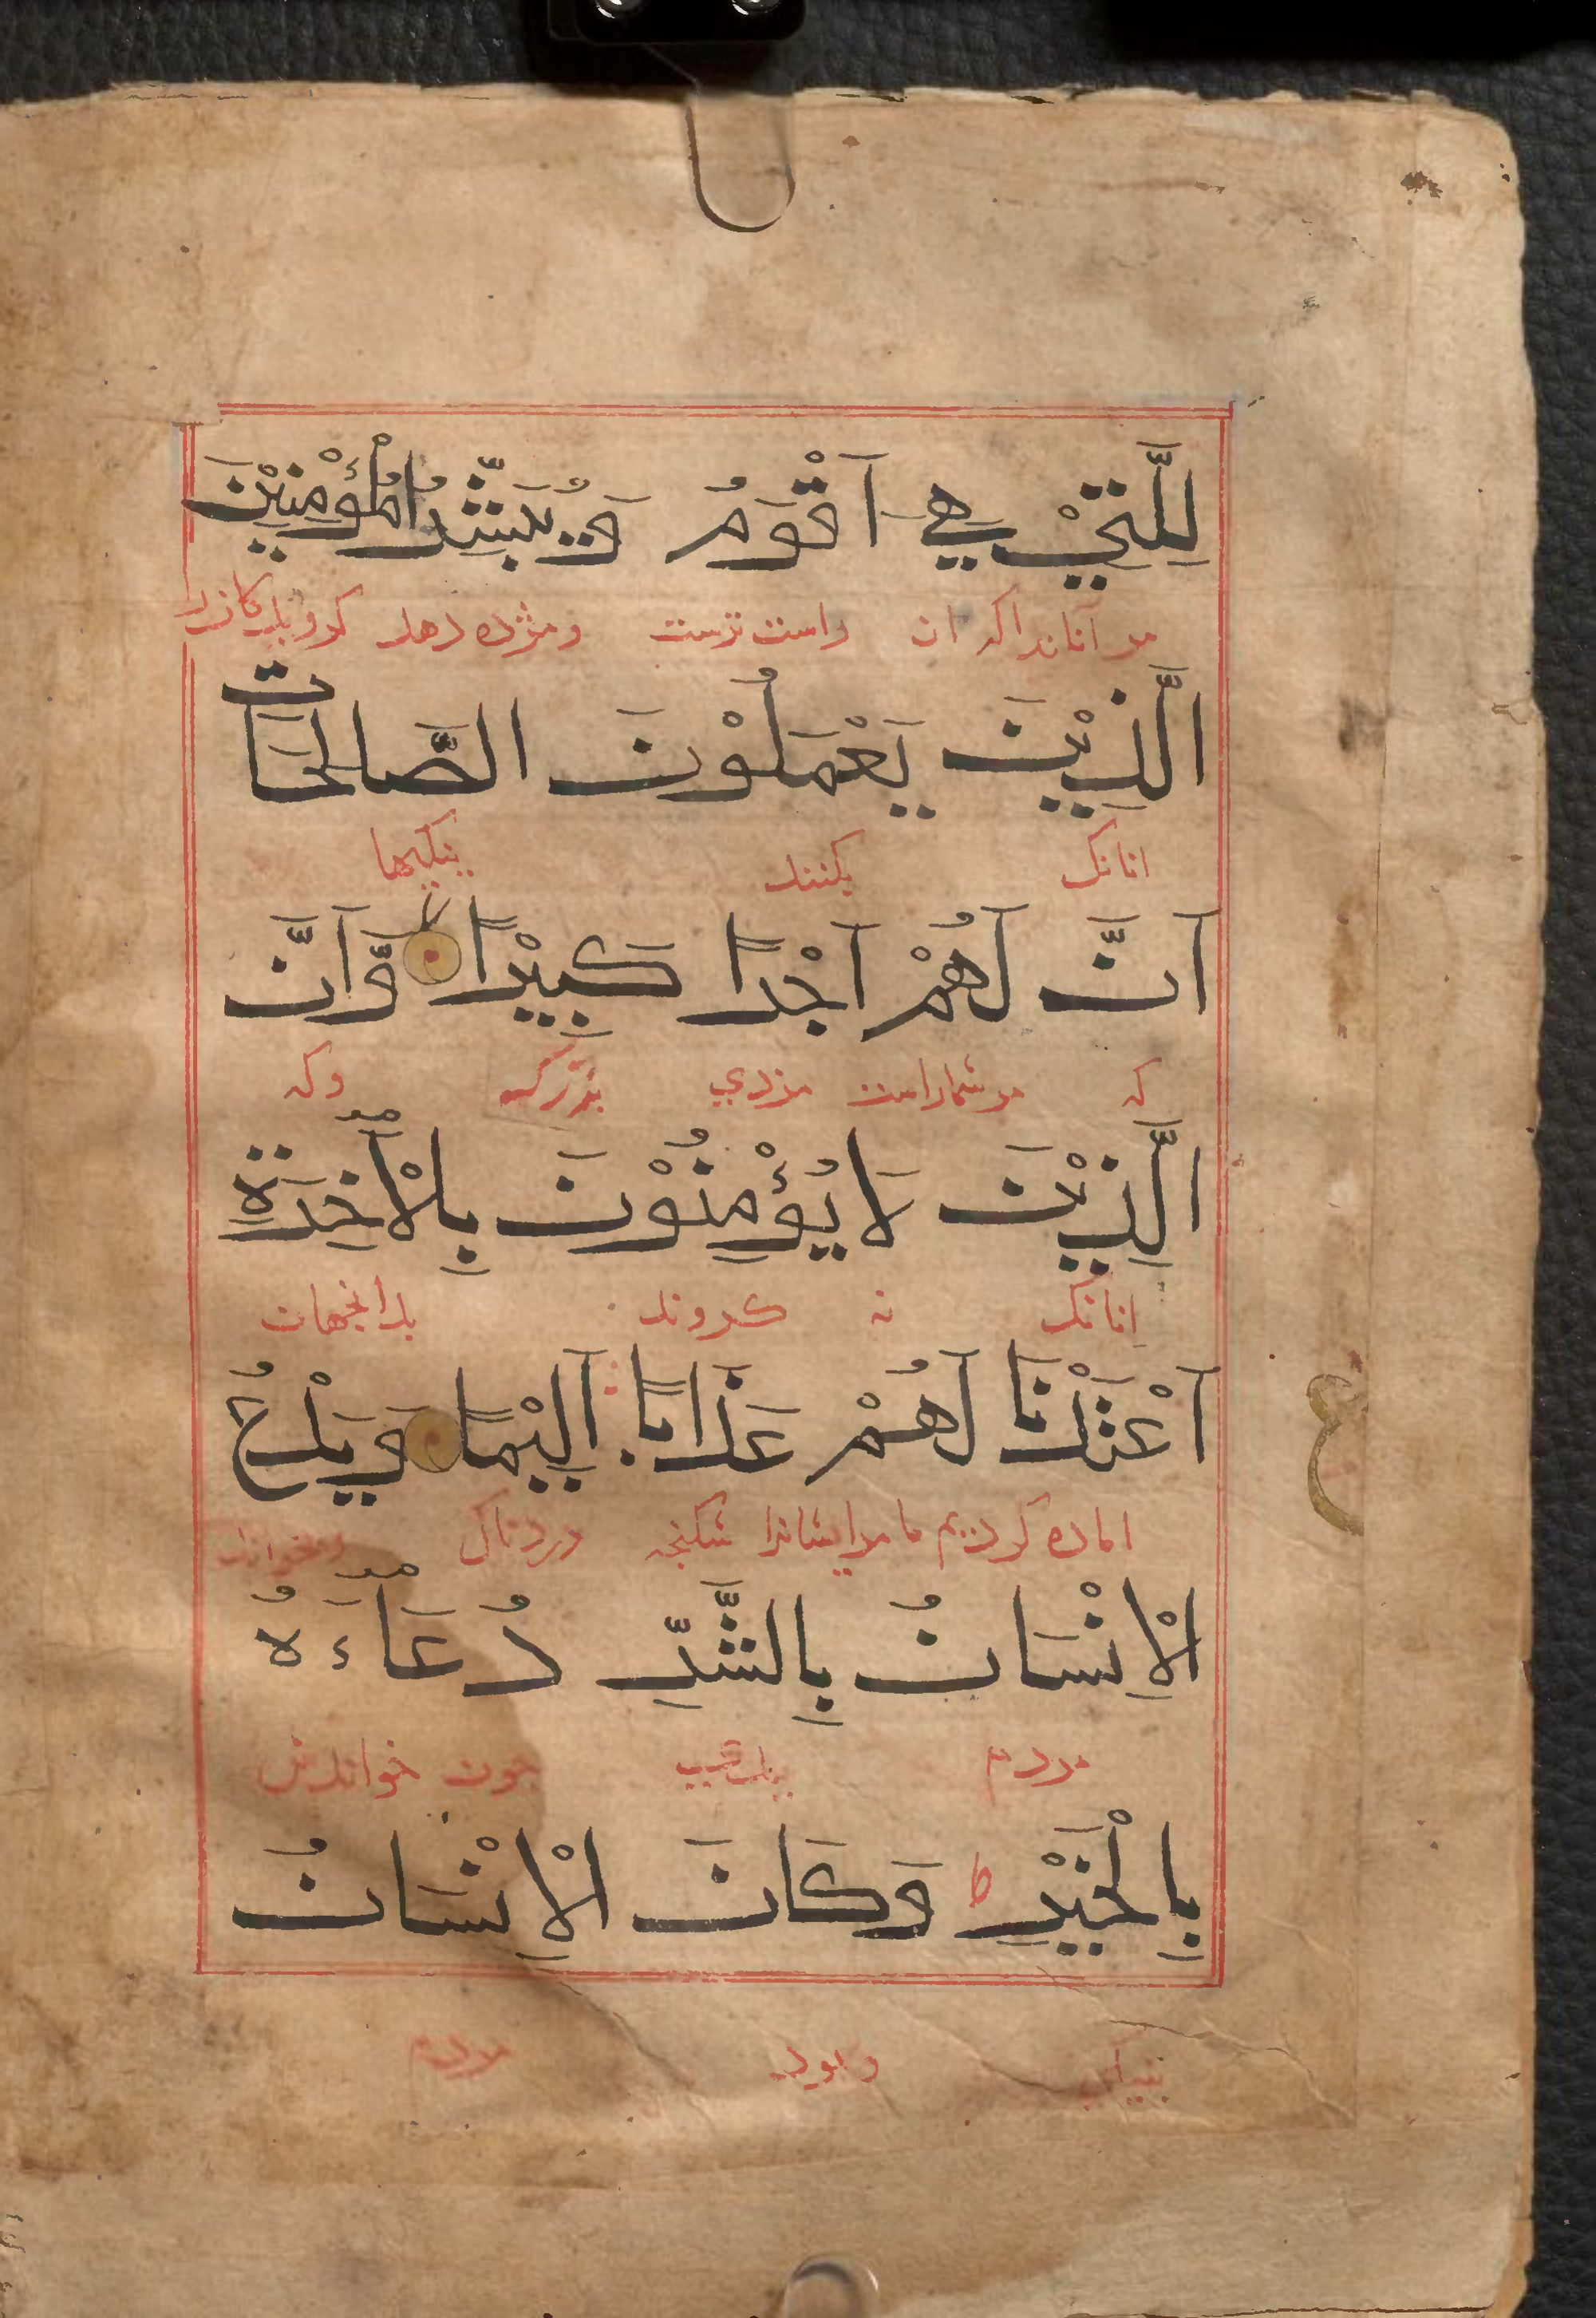 لِلَّتِيْ هِيَ اَقْوَمُ وَيُبَشِّرُ الْمُؤْمِنِيْنَ
مر آنانرا که ان راست ترست ومژده دهد کرویدکانرا
الَّذِيْنَ يَعْمَلُوْنَ الصَّالِحَاتِ
انانک بکنند نیکیها
اَنَّ لَهُمْ اَجْرًا كَبِيْرًا لا وَّاَنَّ
که مرشماراست مزدي بزرک وکه
الَّذِيْنَ لَا يُؤْمِنُوْنَ بِالْاٰخِرَةِ
انانک نه کروند بدانجهان
اَعْتَدْنَا لَهُمْ عَذَابًا اَلِيْمًا وَيَدْعُ
اماده کردیم ما مرایشانرا شکنجه دردناک وبخواند
الْاِنْسَانُ بِالشَّرِّ دُعَآءَهُ
مردم چون خواندنش
بِالْخَيْرِ ط وَكَانَ الْاِنْسَانُ
وبود مردم